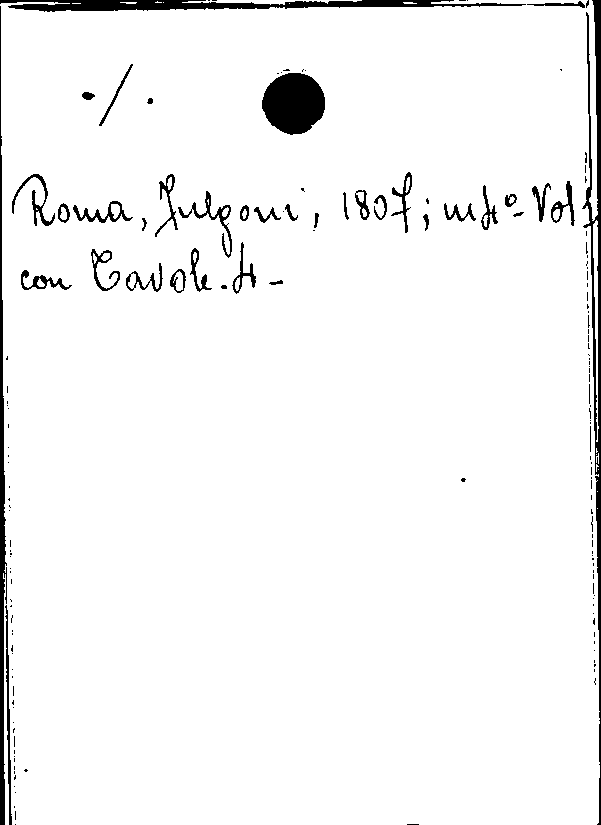 ./.
Roma, Fulgoni, 1807; in 4º - Vol 1
con Tavole. 4 -